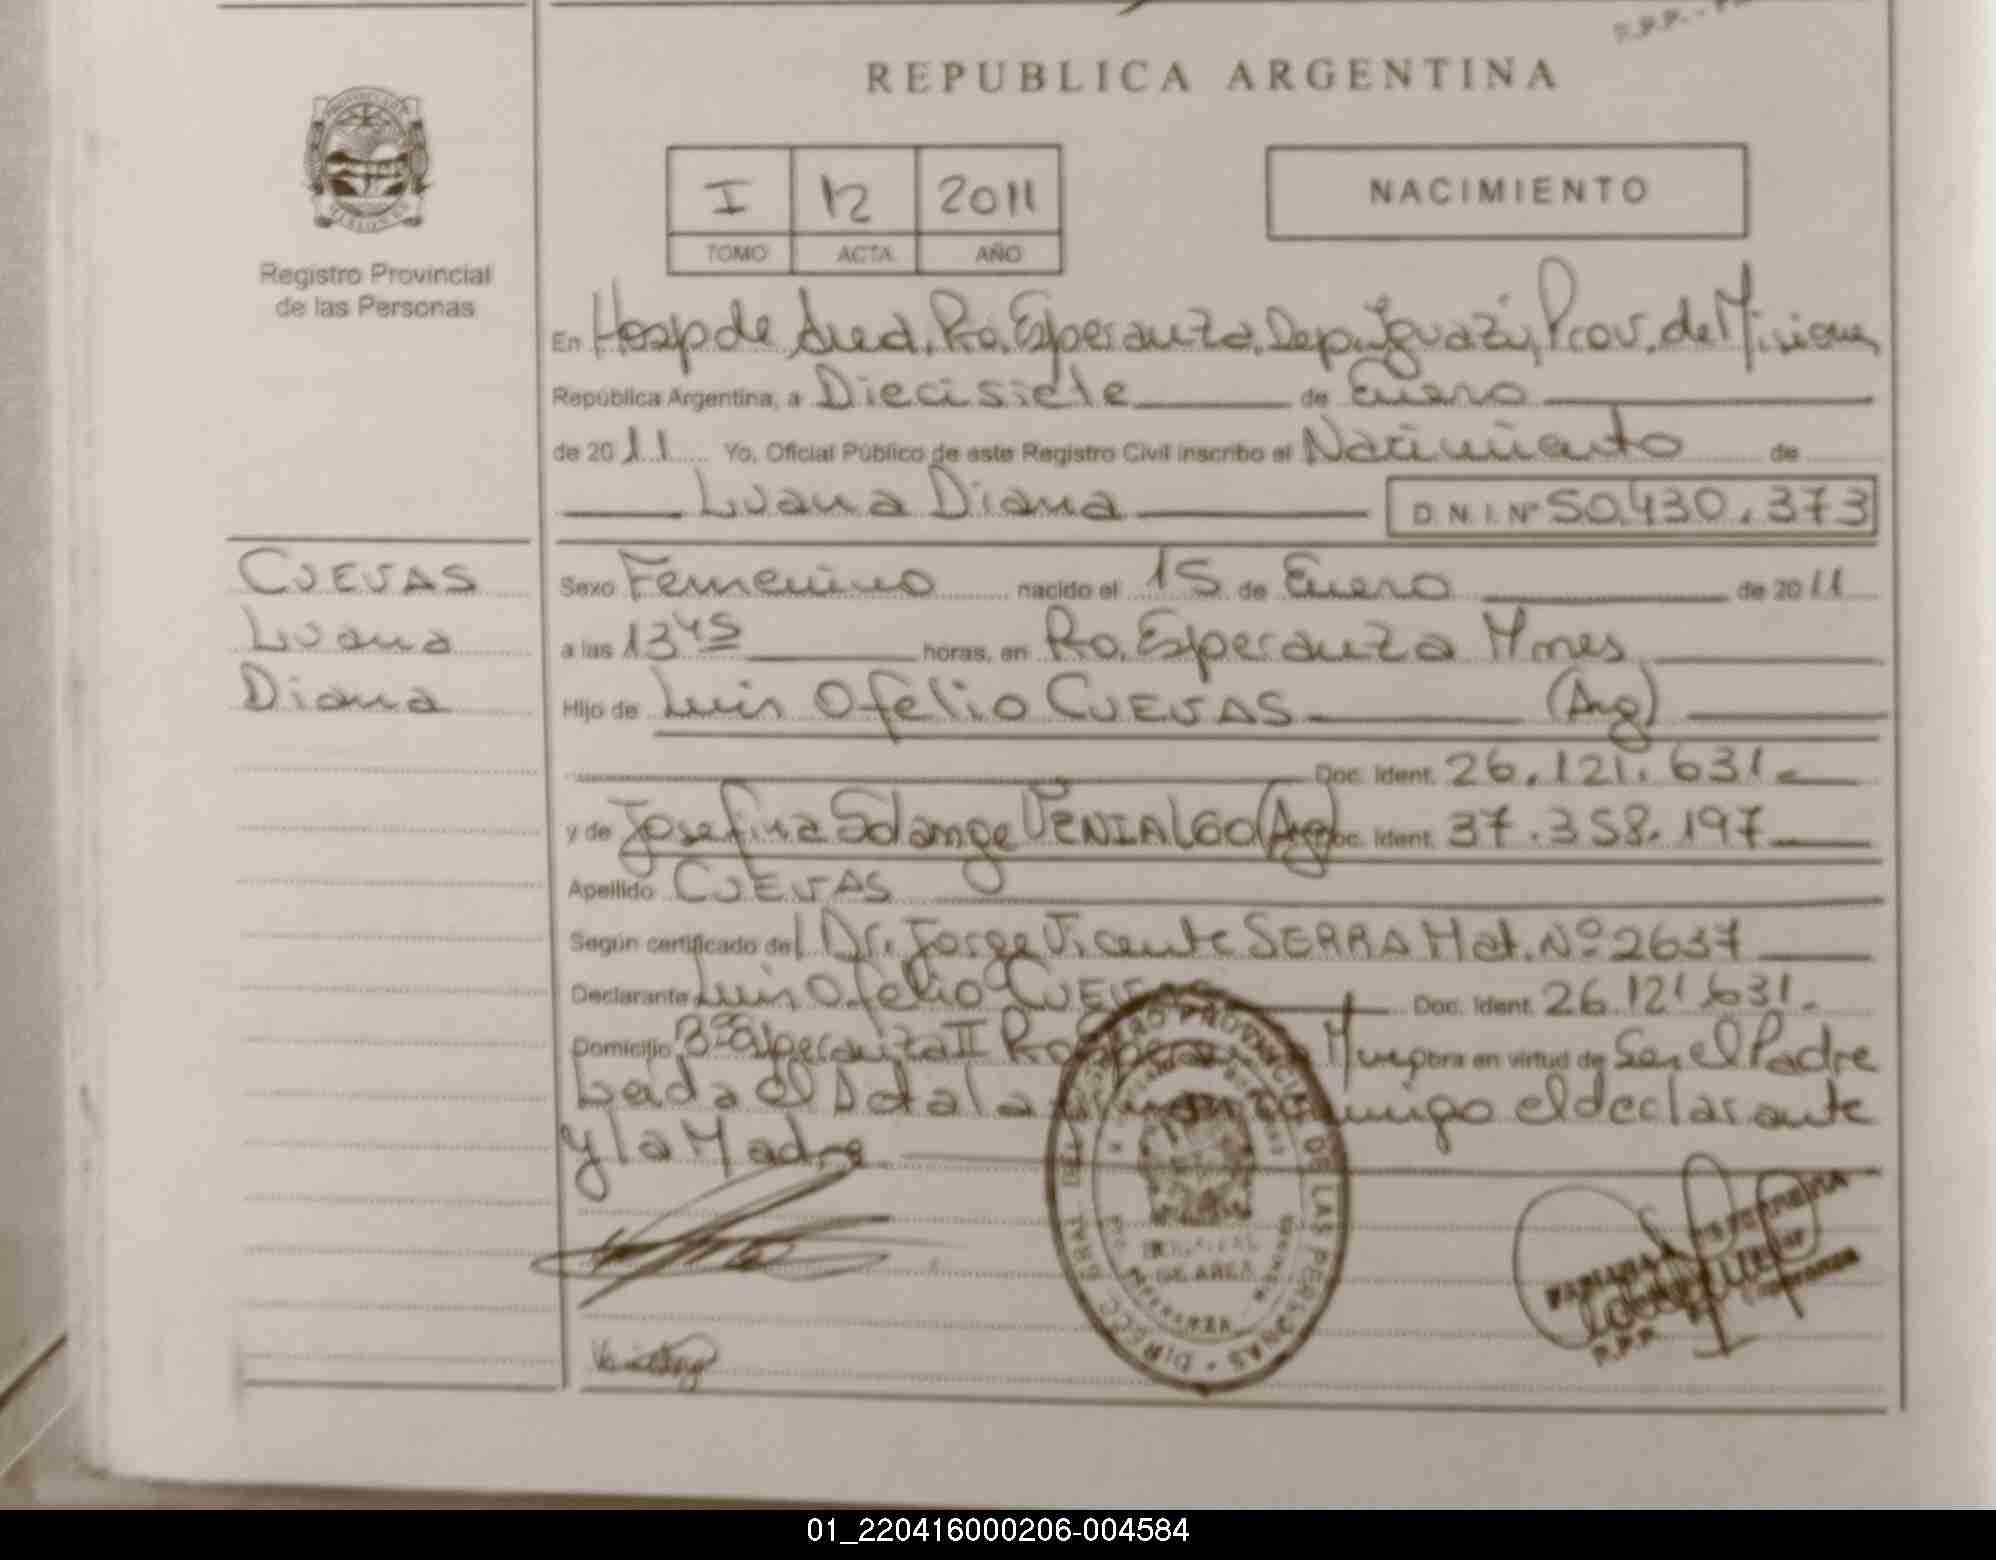 REPUBLICA ARGENTINA
I 12 2011
TOMO ACTA AÑO
NACIMIENTO
Registro Provincial
de las Personas
En Hosp de Área. Pto. Esperanza. Dep. Iguazú, Prov. de Misiones
República Argentina, a Diecisiete de Enero
de 2011 Yo, Oficial Público de este Registro Civil inscribo el Nacimiento de
Luana Diana D.N.I. Nº 50.430.373
CUEVAS
Luana
Diana
Sexo Femenino nacido el 15 de Enero de 2011
a las 13 45 horas, en Pto. Esperanza Mnes
Hijo de Luis Ofelio CUEVAS (Arg)
Doc. Ident. 26.121.631
y de Josefina Solange VENIALGO (Arg) Doc. Ident. 37.358.197
Apellido CUEVAS
Según certificado del Dr. Jorge Vicente SERRA Mat. Nº 2637
Declarante Luis Ofelio CUEVAS Doc. Ident. 26.121.631.
Domicilio Bº Esperanza II Pto. obra en virtud de Ser el Padre
Leida el Acta la conmigo el declarante
y la Madre
01_220416000206-004584